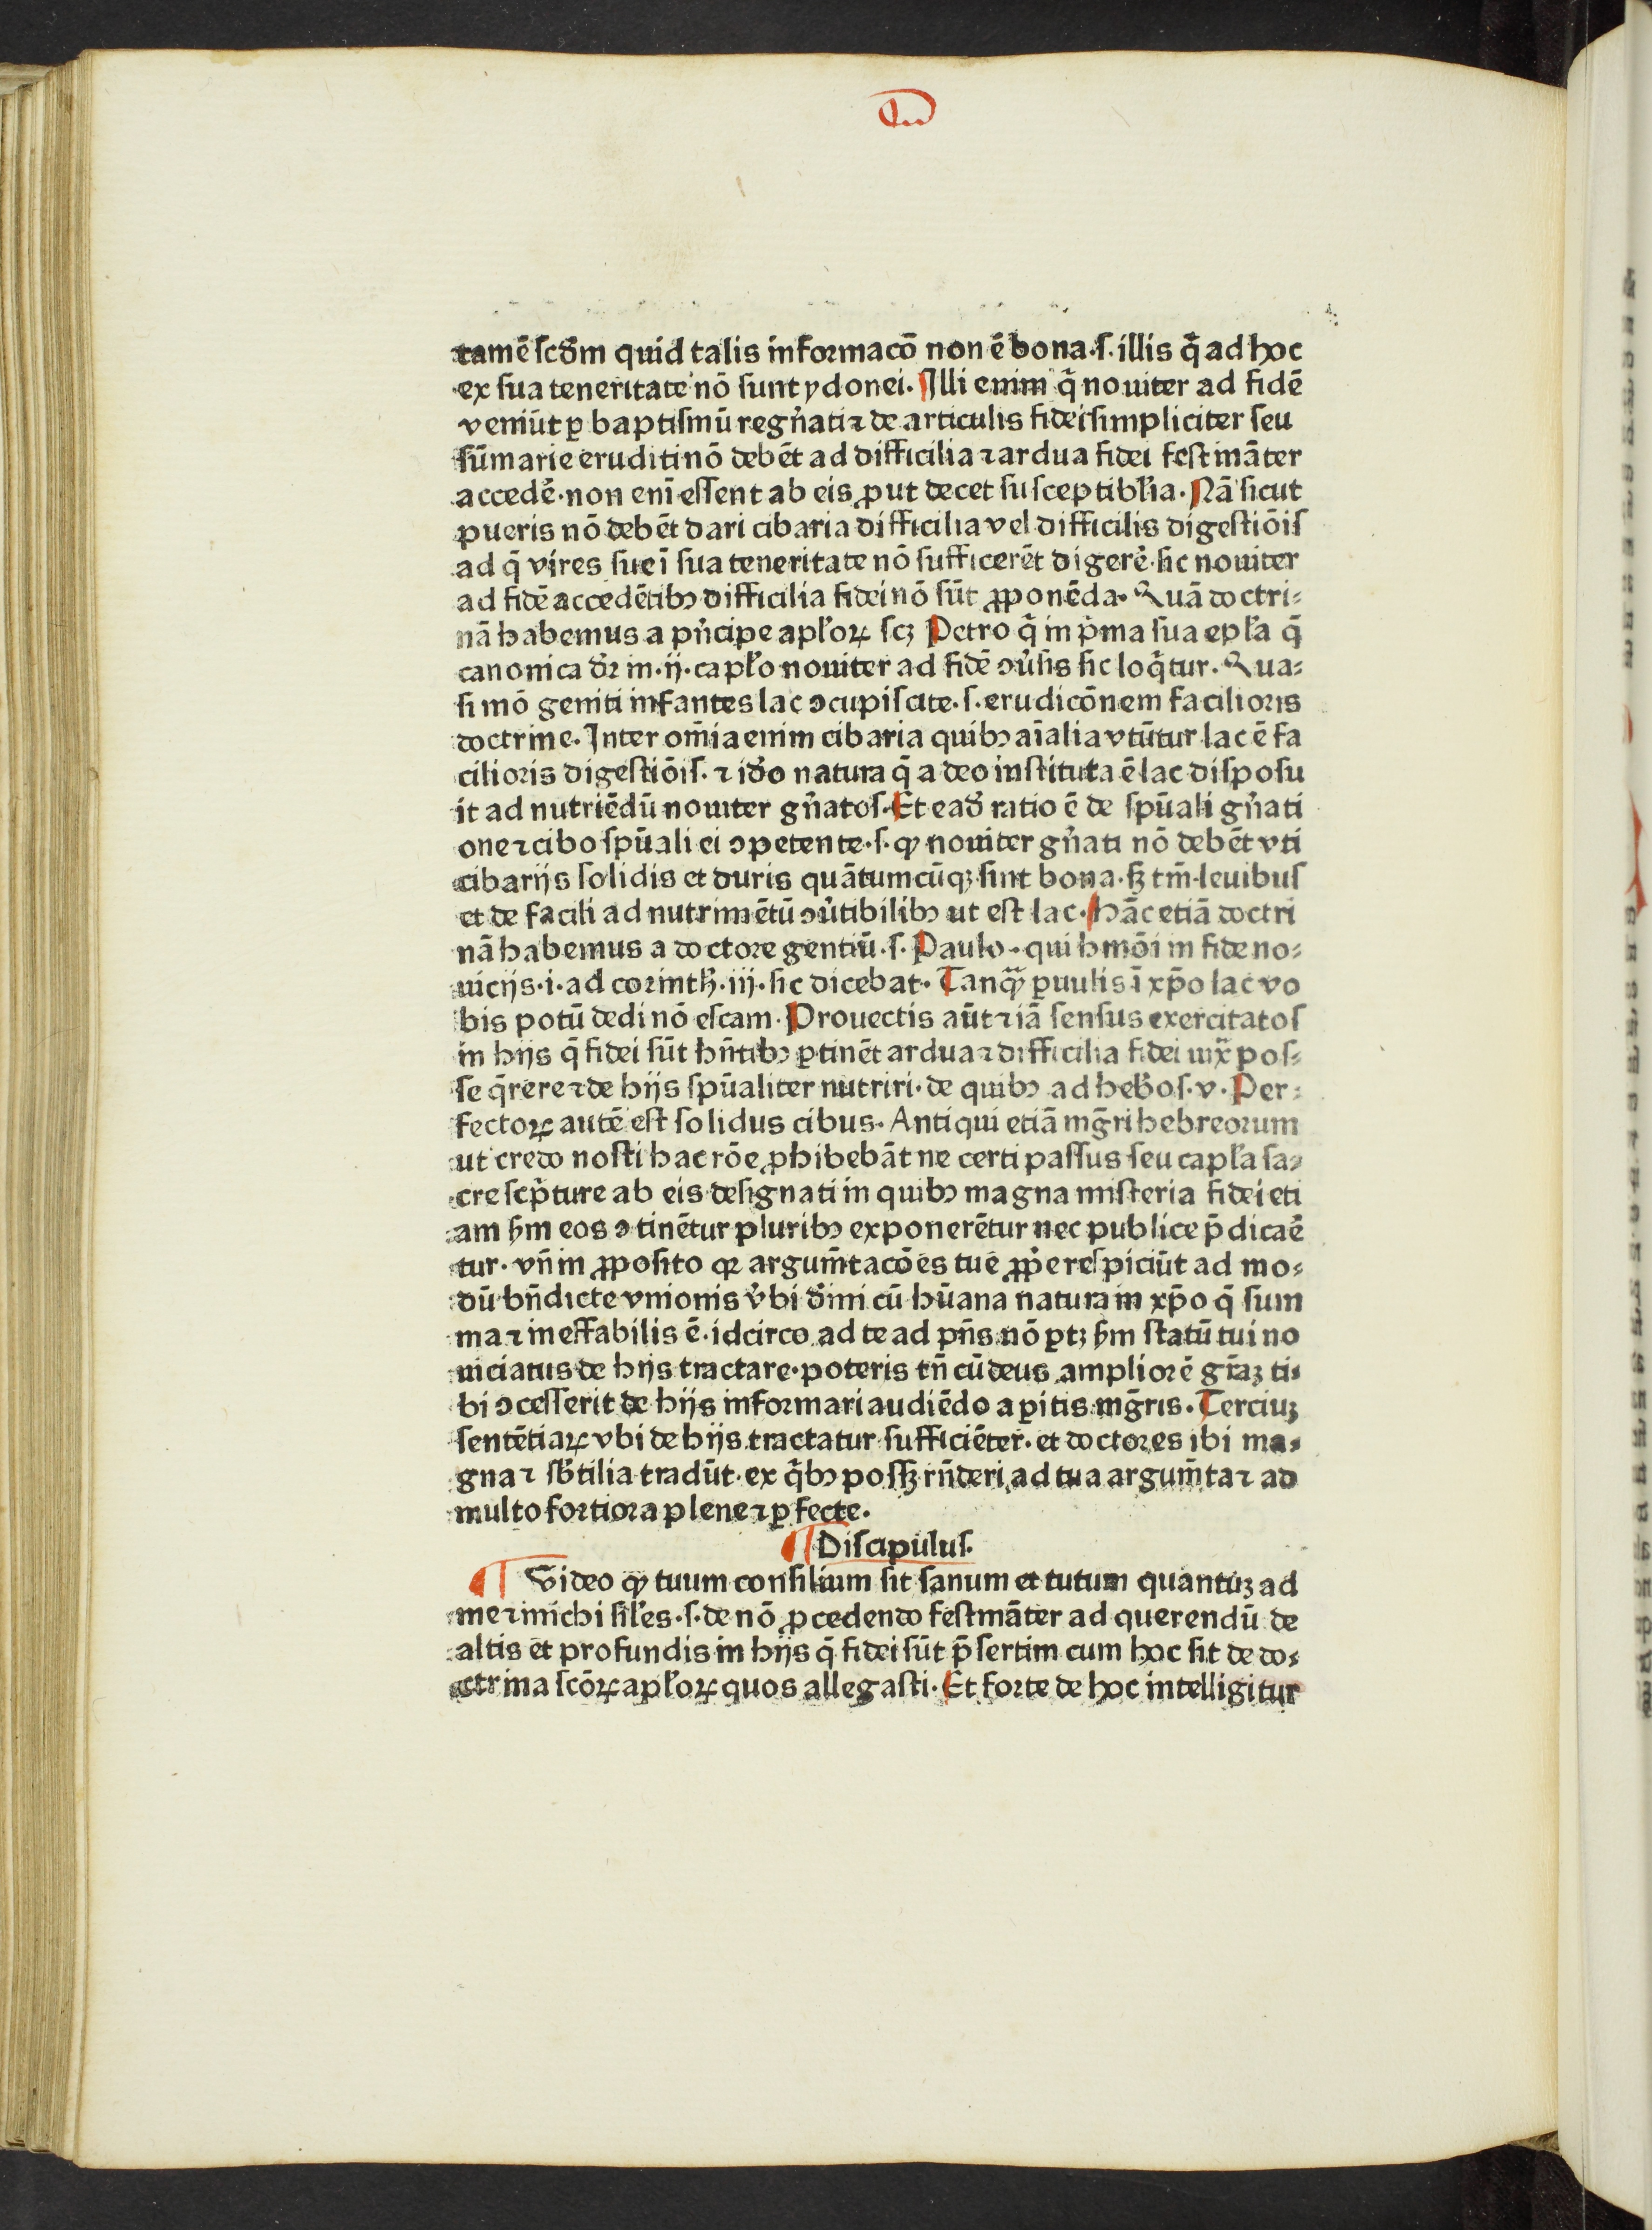 tamē ſcd̄m quid talis informacō non ē bona·ſ·illis q̄ ad hoc
ex ſua teneritate nō ſunt ydonei· Illi enim q̄ nouiter ad fidē
veniūt ꝑ baptiſmū regn̄ati ⁊ de articulis fidei ſimpliciter ſeu
ſūmarie eruditi nō debēt ad difficilia ⁊ ardua fidei feſtināter
accedē·non enī eſſent ab eis ꝓut decet ſuſceptibl̓ia· Nā ſicut
pueris nō debēt dari cibaria difficilia vel difficilis digeſtiōiſ
ad q̄ vires ſue ī ſua teneritate nō ſufficerēt digerē·ſic nouiter
ad fidē accedētibꝰ difficilia fidei nō ſūt ꝓponēda· Quā doctri⸗
nā habemus a pn̓cipe apl̓oꝝ ſcꝫ Petro q̄ in p̄ma ſua epl̓a q̄
canonica dr̄ in·ij·capl̓o nouiter ad fidē ꝯu̓ſis ſic loq̄tur· Qua⸗
ſi mō geniti infantes lac ꝯcupiſcite·ſ·erudicōnem facilioris
doctrine· Inter om̄ia enim cibaria quibꝰ aīalia vtūtur lac ē fa
cilioris digeſtiōiſ·⁊ id̓o natura q̄ a deo inſtituta ē lac diſpoſu
it ad nutriēdū nouiter gn̓atoſ· Et ead̓ ratio ē de ſpūali gn̓ati
one ⁊ cibo ſpūali ei ꝯpetente·ſ·ꝙ nouiter gn̓ati nō debēt vti
cibarijs ſolidis et duris quātumcūqꝫ ſint bona·ſꝫ tm̄·leuibuſ
et de facili ad nutrimētū ꝯu̓tibilibꝰ ut eſt lac· Hāc etiā doctri
nā habemus a doctore gentiū·ſ·Paulo·qui hmōi in fide no⸗
uicijs·i·ad corinth̓·iij·ſic dicebat· Tanqᷓꝫ ꝑuulis ī xp̄o lac vo
bis potū dedi nō eſcam· Prouectis aūt ⁊ iā ſenſus exercitatoſ
in hijs q̄ fidei ſūt hn̄tibꝰ ꝑtinēt ardua ⁊ difficilia fidei iux̄ poſ⸗
ſe q̄rere ⁊ de hijs ſpūaliter nutriri·de quibꝰ ad heb̓oſ·v·Per⸗
fectoꝝ autē eſt ſolidus cibus· Antiqui etiā mḡri hebreorum
ut credo noſti hac rōe ꝓhibebāt ne certi paſſus ſeu capl̓a ſa⸗
cre ſcp̄ture ab eis deſignati in quibꝰ magna miſteria fidei eti
am ẜm eos ꝯtinētur pluribꝰ exponerētur nec publice p̄dicaē
tur·vn̄ in ꝓpoſito qꝛ argum̄tacōes tue ꝓp̓e reſpiciūt ad mo⸗
dū bn̄dicte vnionis v̓bi d̓ini cū hūana natura in xp̄o q̄ ſum
ma ⁊ ineffabilis ē·idcirco ad te ad pn̄s nō ꝑtꝫ ẜm ſtatū tui no
uiciatus de hijs tractare·poteris tn̄ cū deus ampliorē gr̄aꝫ ti⸗
bi ꝯceſſerit de hijs informari audiēdo a ꝑitis mḡris· Terciuꝫ
ſentētiaꝝ vbi de hijs tractatur ſufficiēter·et doctores ibi ma⸗
gna ⁊ ſb̓tilia tradūt·ex q̄bꝰ poſſꝫ rn̄deri ad tua argum̄ta ⁊ ad
multo fortiora plene ⁊ ꝑfecte·
Diſcipuluſ·
Video ꝙ tuum conſilium ſit ſanum et tutum quantuꝫ ad
me ⁊ michi ſil̓es·ſ·de nō ꝓcedendo feſtināter ad querendū de
altis et profundis in hijs q̄ fidei ſūt p̄ſertim cum hoc ſit de do⸗
ctrina ſcōꝝ apl̓oꝝ quos allegaſti· Et forte de hoc intelligitur